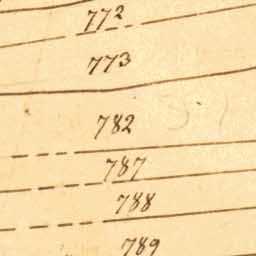 772
773
782
787
788
789